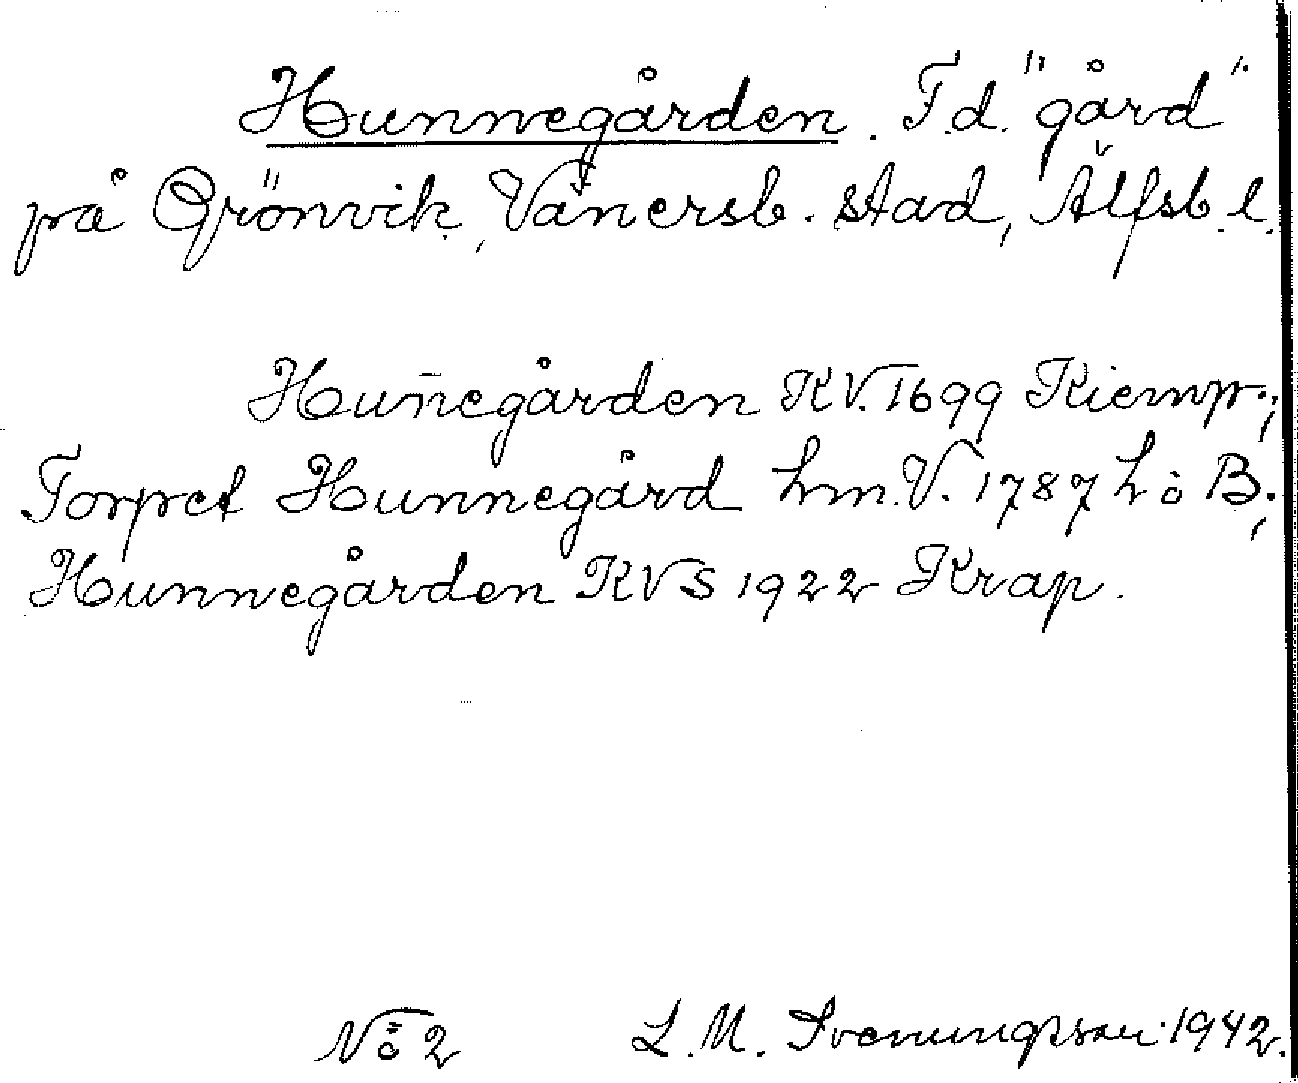 Hunnegården. F.d. "gård"
på Grönvik, Vänersb. stad, Älfsb. l.
Hun̄egården KV. 1699 Kiemp.;
Torpet Hunnegård Lm.V. 1787 L ö B.;
Hunnegården KVS 1922 Krap.
No 2 L. M. Svenungsson 1942.